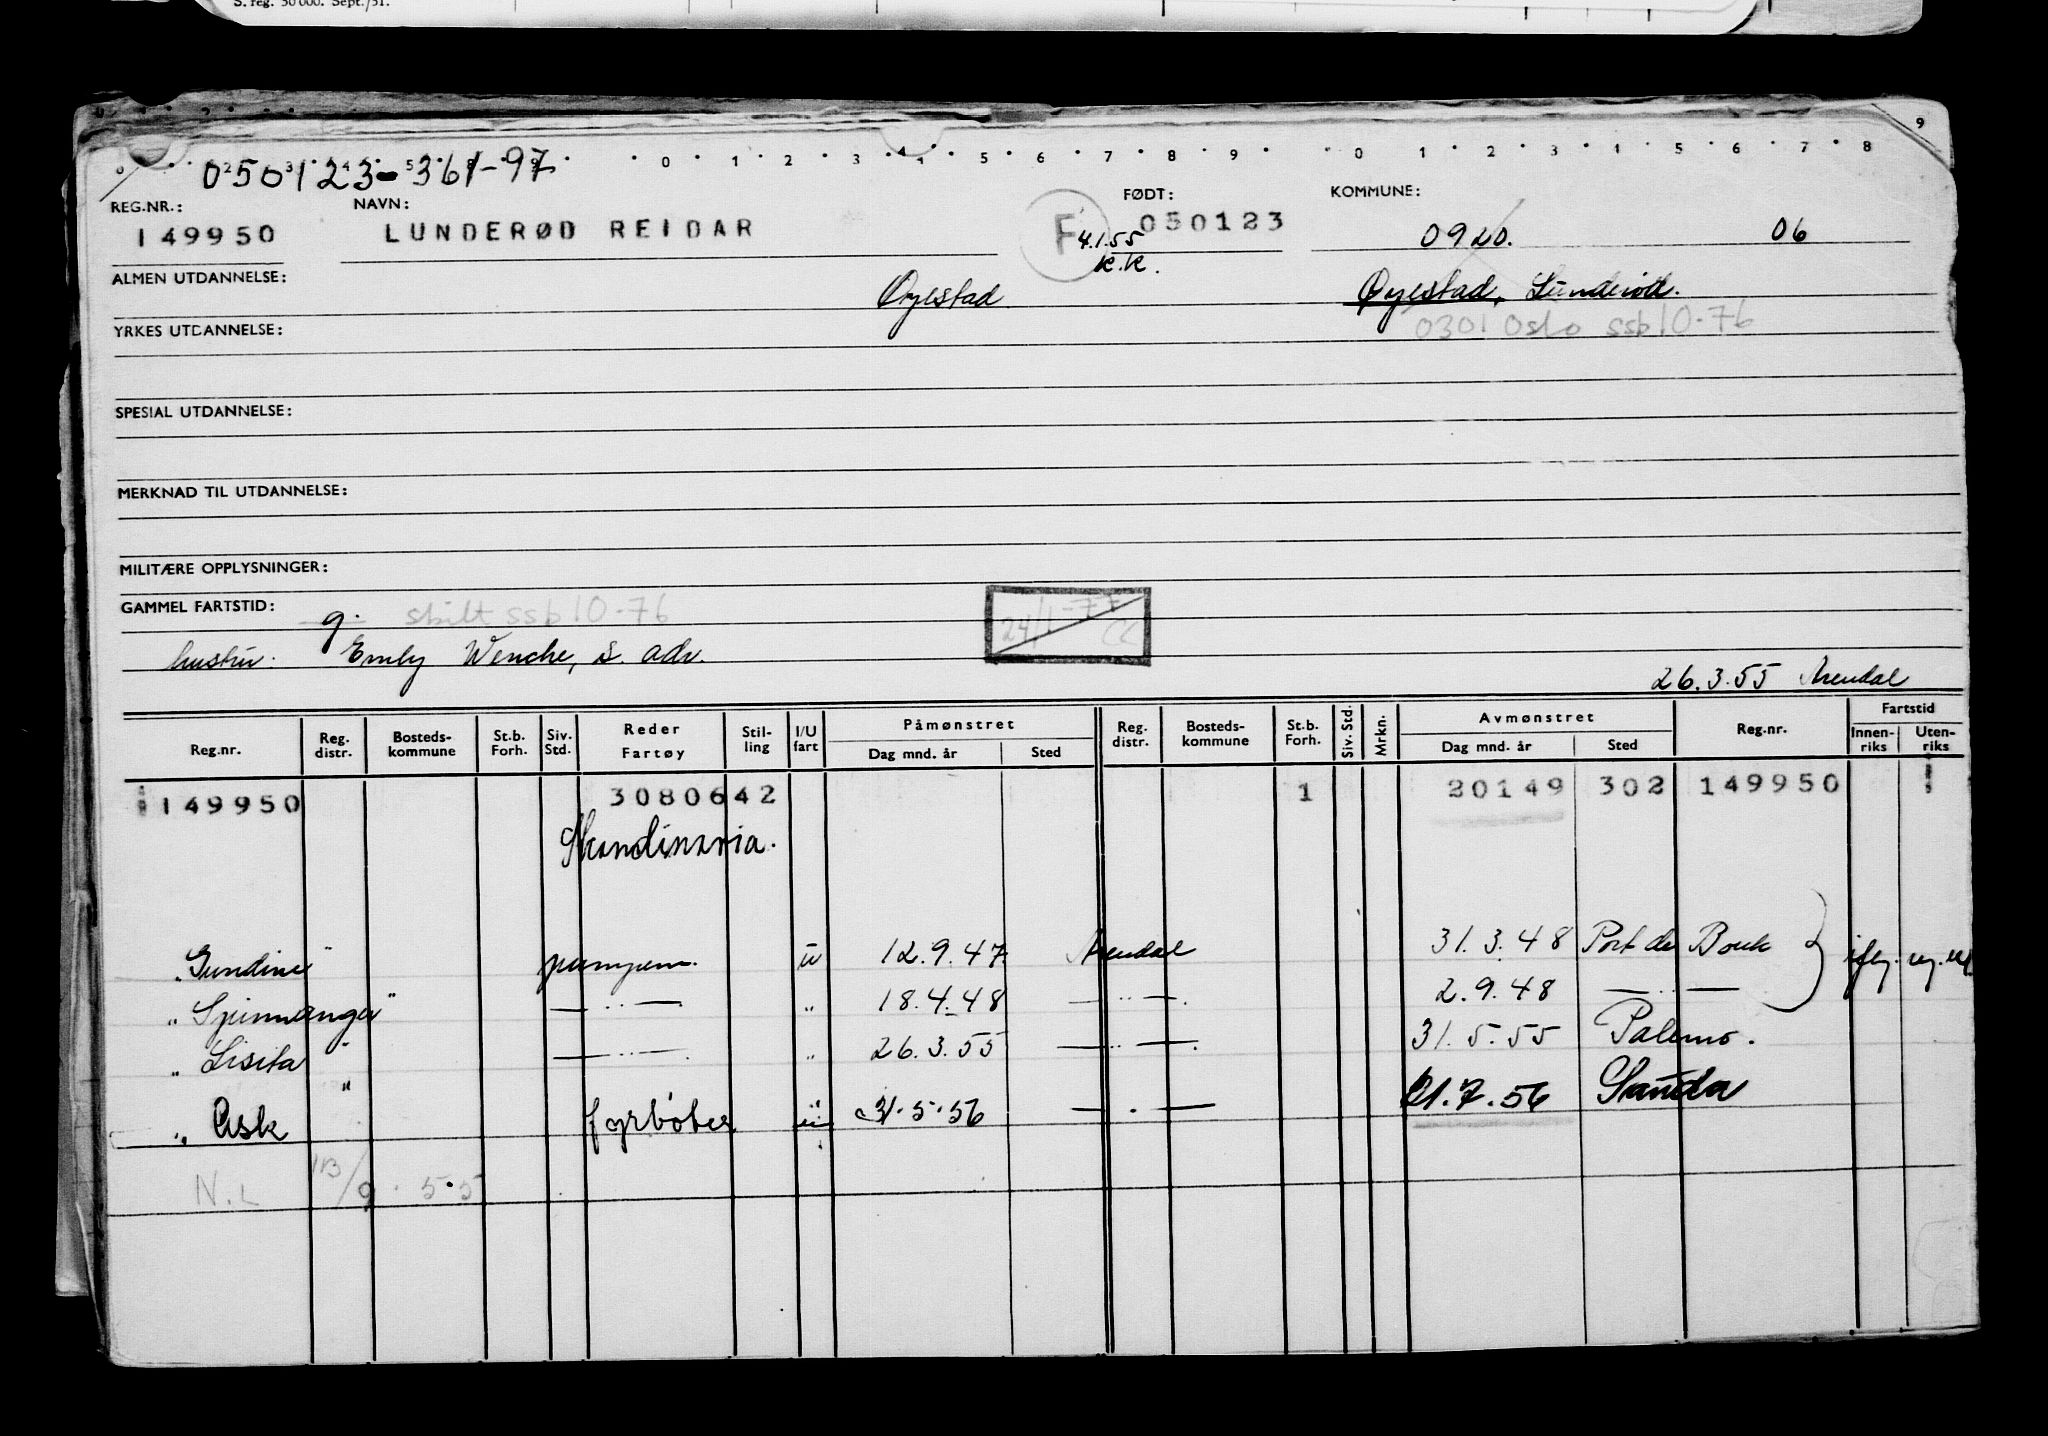 S. reg. 50 000. Sept./51.
9
050123-361-97
0 1 2 3 4 5 6 7 8 9 0 1 2 3 4 5 6 7 8
REG.NR.: NAVN: FØDT: KOMMUNE:
149950 LUNDERØD REIDAR F 4.1.55 050123 0920. 06
K.K.
ALMEN UTDANNELSE: Øyestad Øyestad, Lunderød.
YRKES UTDANNELSE: 0301 Oslo ssb 10-76
SPESIAL UTDANNELSE:
MERKNAD TIL UTDANNELSE:
MILITÆRE OPPLYSNINGER:
GAMMEL FARTSTID: g. skilt ssb 10-76 24/1-77
hustru. Emly Wenche, s. adr.
26.3.55 Arendal
Reg.nr. Reg. distr. Bosteds-kommune St.b. Forh. Siv. Std. Reder Fartøy Stil-ling I/U fart Påmønstret Dag mnd. år Sted Reg. distr. Bosteds-kommune St.b. Forh. Siv. Std. Mrkn. Avmønstret Dag mnd. år Sted Reg.nr. Fartstid Innen-riks Uten-riks
149950 3080642 1 20149 302 149950 1
Skandinavia.
"Gundine" pumpem. u 12.9.47 Arendal 31.3.48 Port de Bouk
"Spinnanger" —"— " 18.4.48 —"—. 2.9.48 —"—
"Lisita" —"—. " 26.3.55 —"—. 31.5.55 Palermo.
"Ask" fyrbøter u 31.5.56 —"— 21.7.56 Sauda
N.L 9.55